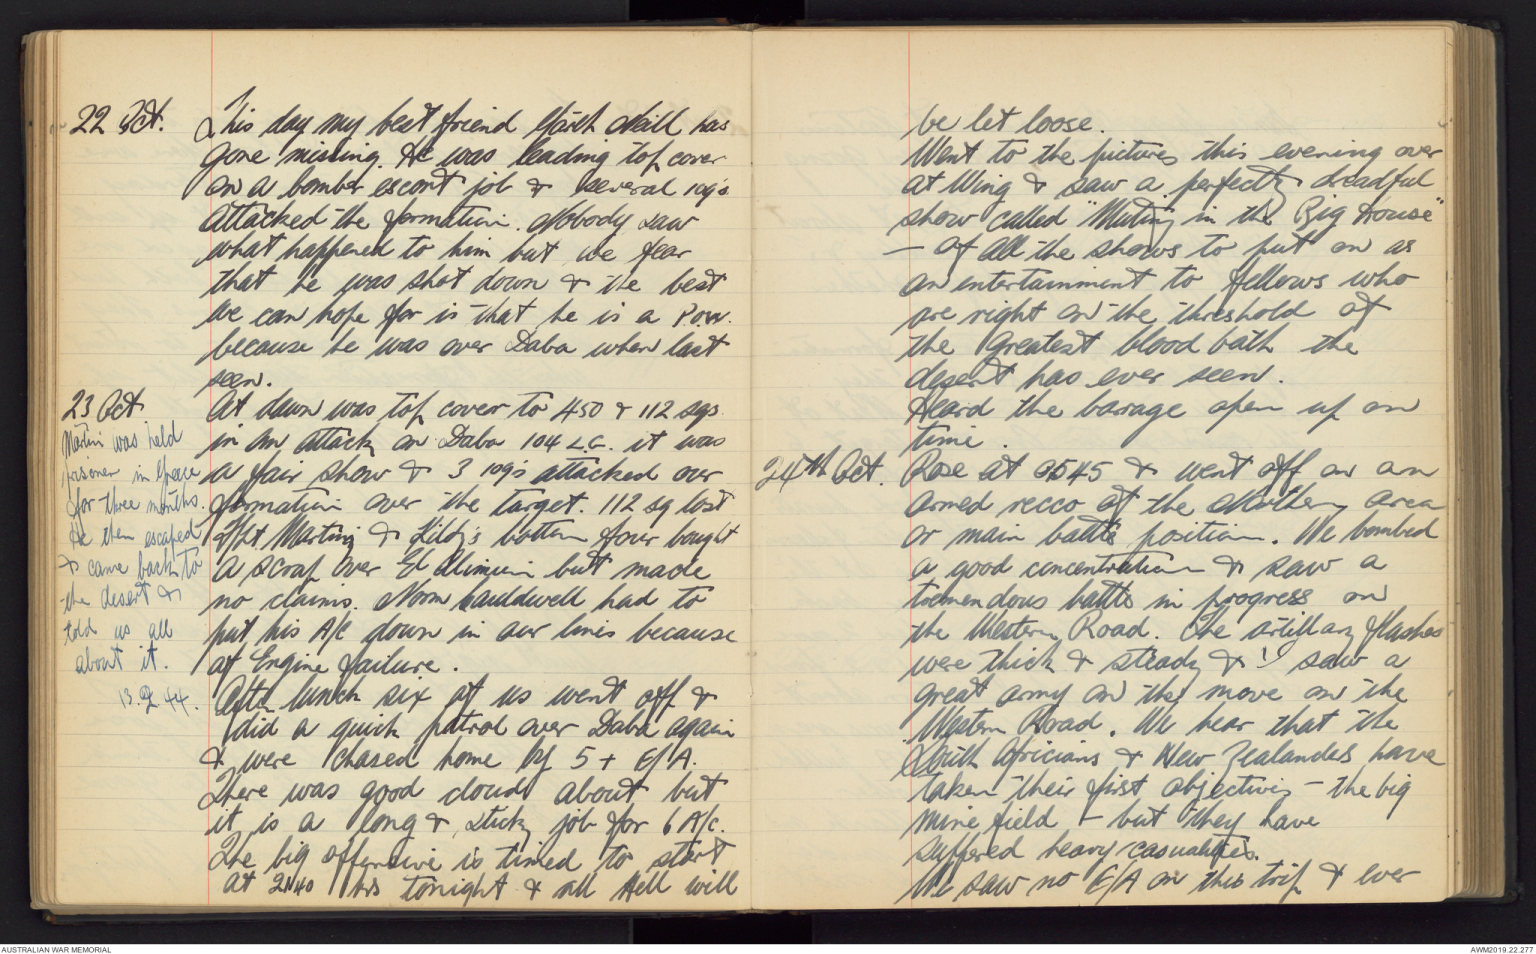 22 Oct. This day my best friend Garth Neill has
gone missing. He was leading top cover
on a bomber escort job & several 109's
attacked the formation. Nobody saw
what happened to him but we fear
that he was shot down & the best
we can hope for is that he is a P.O.W.
because he was over Daba when last
seen.
23 Oct At dawn was top cover to 450 & 112 sqs
in an attack on Daba 104 L.G. it was
a fair show & 3 109's attacked our
formation over the target. 112 sq lost
F/Lt Martin & Kildy's bottom four bought
a scrap over El Alimein but made
no claims. Norm Cauldwell had to
put his A/c down in our lines because
of Engine failure.
Martin was held
prisoner in Greece
for three months.
He then escaped
& came back to
the desert &
told us all
about it.
13.2.44.
After lunch six of us went off &
did a quick patrol over Daba again
& were chased home by 5+ E/A.
There was good cloud about but
it is a long & sticky job for 6 A/c.
The big offensive is timed to start
at 2140 hrs tonight & all Hell will
be let loose.
Went to the pictures this evening over
at Wing & saw a perfectly dreadful
show called "Mutiny in the Big House"
- of all the shows to put on as
an entertainment to fellows who
are right on the threshold of
the greatest blood bath the
desert has ever seen.
Heard the barage open up on
time.
24th Oct. Rose at 0545 & went off on an
armed recco of the Northern area
or main battle position. We bombed
a good concentration & saw a
tremendous battle in progress on
the Western Road. The artillary flashes
were thick & steady & I saw a
great army on the move on the
Western Road. We hear that the
South Africians & New Zealanders have
taken their first objectives - the big
mine field - but they have
suffered heavy casualties.
We saw no E/A on this trip & ever
AUSTRALIAN WAR MEMORIAL
AWM2019.22.277